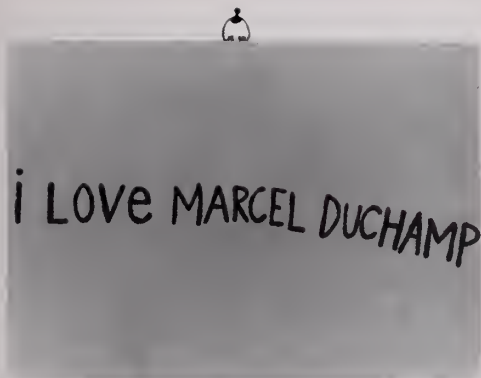 i LOVe MARCEL DUCHAMP